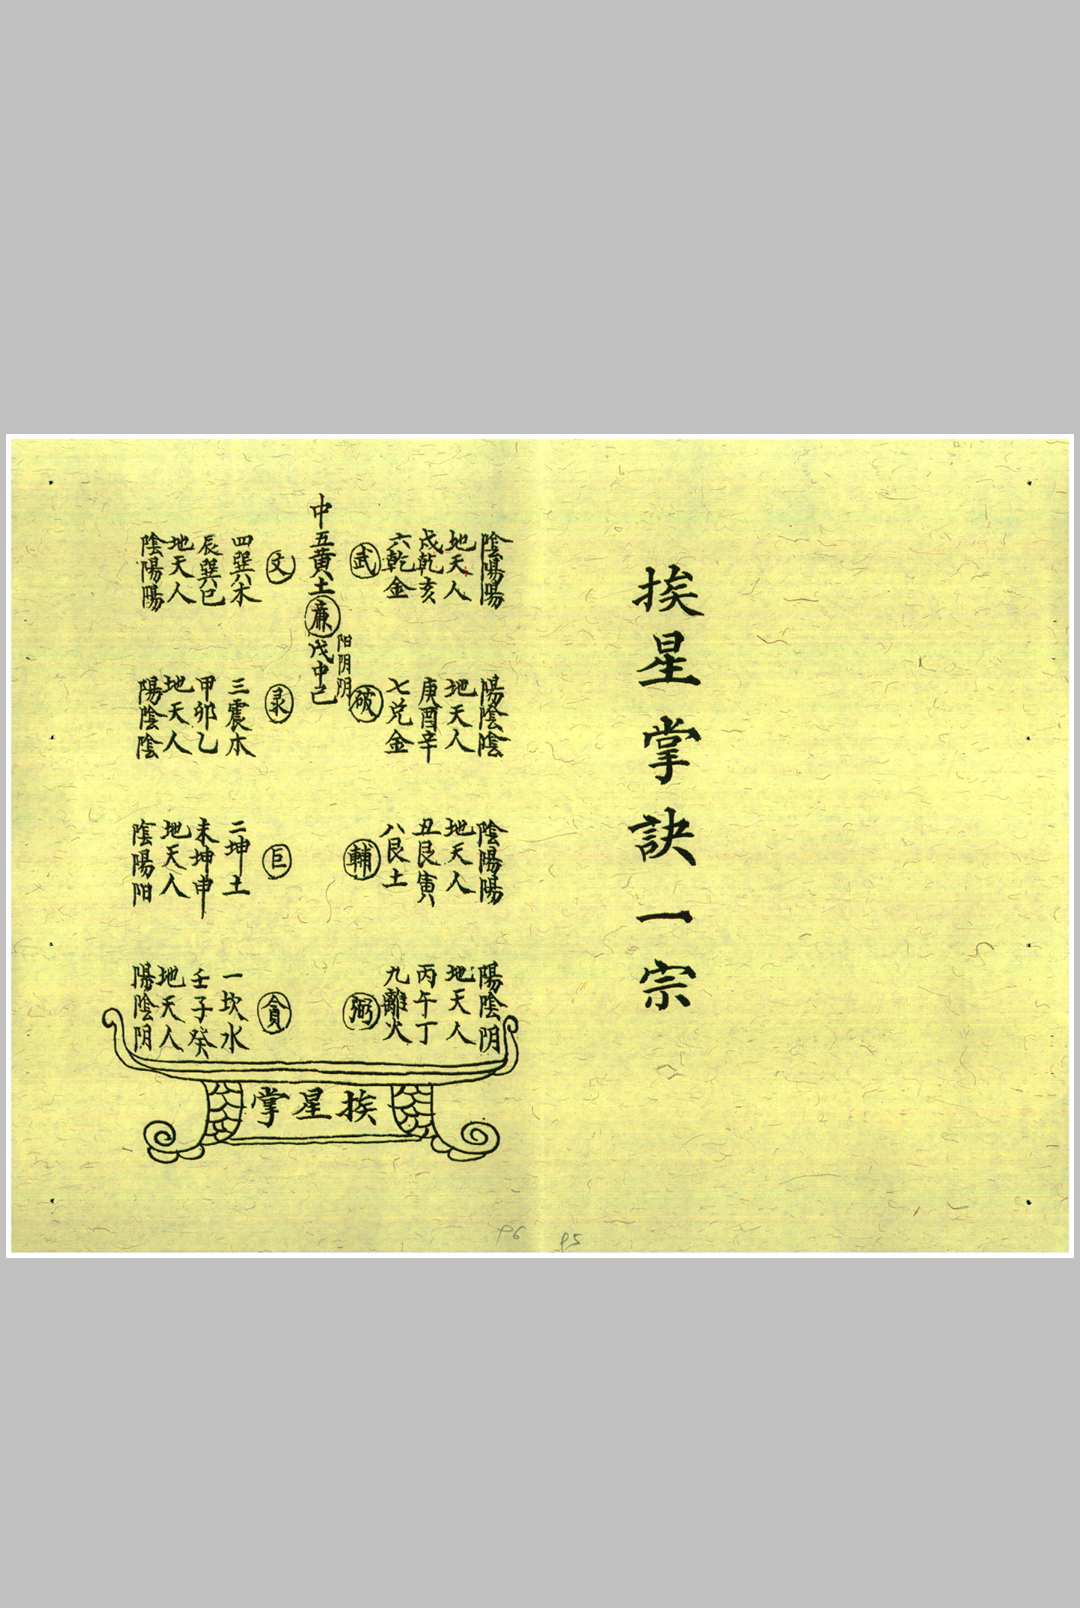 挨星掌訣一宗
中五黃土廉戊中己
阳阴阴
陰陽陽
地天人
戌乾亥
六乾金
武
文
四巽木
辰巽巳
地天人
陰陽陽
陽陰陰
地天人
庚酉辛
七兌金
破
录
三震木
甲卯乙
地天人
陽陰陰
陰陽陽
地天人
丑艮寅
八艮土
輔
巨
二坤土
未坤申
地天人
陰陽阳
陽陰阴
地天人
丙午丁
九離火
弼
貪
一坎水
壬子癸
地天人
陽陰阴
挨星掌
P5
P6